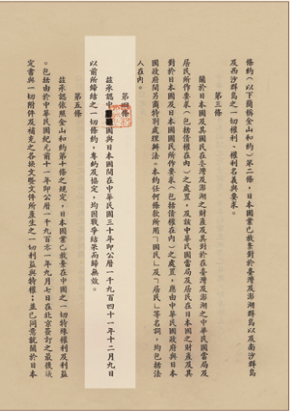 條約(以下簡稱金山和約)第二條,日本國業已放棄對於臺灣及澎湖羣島以及南沙羣島
及西沙羣島之一切權利、權利名義與要求。
第三條
關於日本國及其國民在臺灣及澎湖之財產及其對於在臺灣及澎湖之中華民國當局及
居民所作要求(包括債權在內)之處置,及該中華民國當局及居民在日本國之財產及其
對於日本國及日本國國民所作要求(包括債權在內)之處置,應由中華民國政府與日本
國政府間另商特別處理辦法。本約任何條款所用「國民」及「居民」等名詞,均包括法
人在內。
第四條
茲承認中國與日本國間在中華民國三十年即公曆一千九百四十一年十二月九日
以前所締結之一切條約、專約及協定,均因戰爭結果而歸無效。
第五條
茲承認依照金山和約第十條之規定,日本國業已放棄在中國之一切特殊權利及利益
。包括由於中華民國紀元前十一年即公曆一千九百零一年九月七日在北京簽訂之最後議
定書與一切附件及補充之各換文暨文件所產生之一切利益與特權;並已同意就關於日本